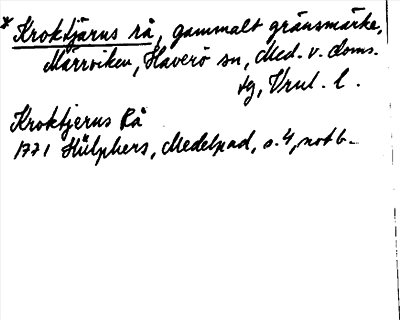 * Kroktjärns rå, gammalt gränsmärke,
Marrviken, Haverö sn, Med. v. doms.
tg, Vrul. l.
Kroktjerns Rå
1771 Hülphers, Medelpad, s. 4, not b.